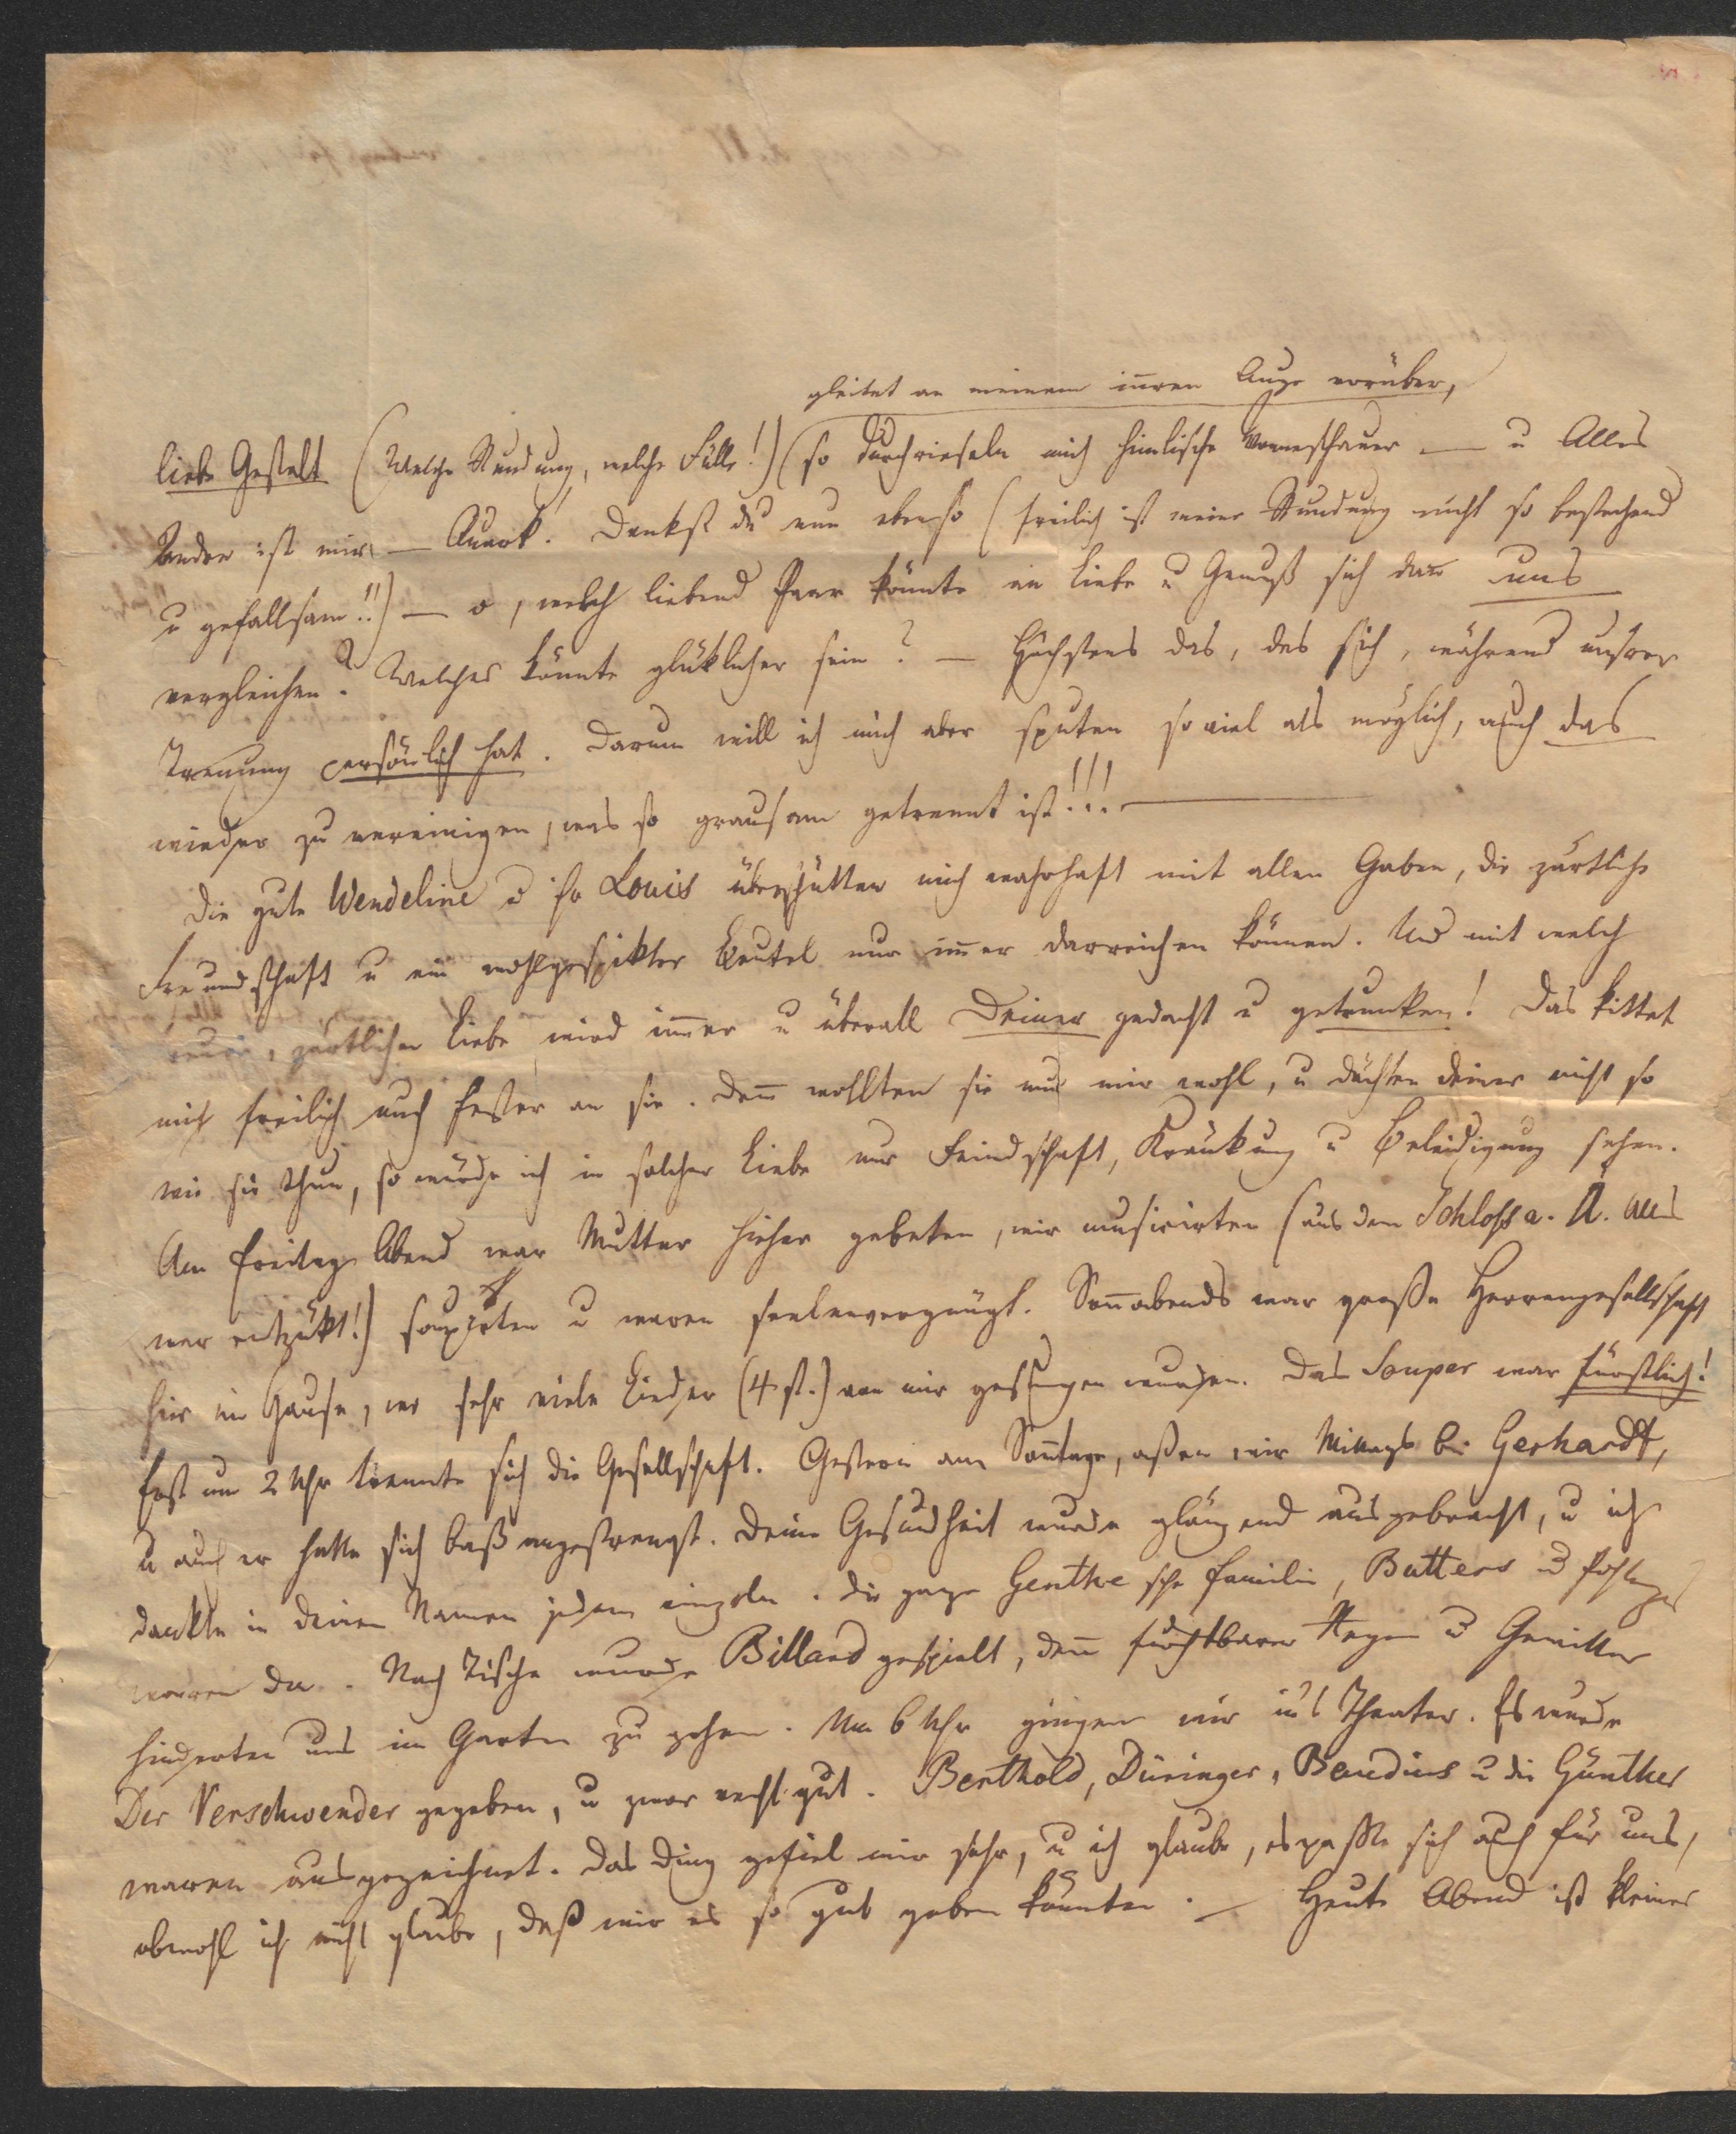 gleitet an meinem iñren Auge vorüber,
liebe Gestalt (Welche Rundung, welche Fülle!) (so durchrieseln mich himlische Woneschauer — u Alles
Andre ist mir — Quark. Denkst du nun ebenso (freilich ist meine Rundung nicht so bestechend
u gefallsam!!) — o, welch liebend Paar könnte an Liebe u Genuß sich dañ uns
vergleichen? Welches könnte glüklicher sein? — Höchstens das, das sich, während unsrer
Trenung persönlich hat. Darum will ich mich aber sputen so viel als möglich, auch das
wieder zu vereinigen, was so grausam getrennt ist!!! —
Die gute Wendeline u ihr Louis überschütten mich wahrhaft mit allen Gaben, die zärtliche
Freundschaft u ein wohlgespikter Beutel nur im̃er darreichen können. Und mit welch
zärtlicher Liebe wird im̃er u überall Deiner gedacht u getrunken! Das kittet
mich freilich auch fester an sie. Deñ wollten sie nur mir wohl, u dächten deiner nicht so
wie sie thun, so würde ich in solcher Liebe nur Feindschaft, Kränkung u Beleidigung sehen.
Am Freitag Abend war Mutter hieher gebeten, wir musicirten (aus dem Schloß a. Ä. Alles
war entzükt!) soupirten u waren seelenvergnügt. Soñabends war große Herrengesellschaft
hier im Hause, wo sehr viele Lieder (4 st.) von mir gesungen wurden. Das Souper war fürstlich!
Erst um 2 Uhr trennte sich die Gesellschaft. Gestern am Soñtage, aßen wir Mittags bei Gerhardt,
u auch er hatte sich baß angestrengt. Deine Gesundheit wurde glänzend ausgebracht, u ich
dankte in deinem Namen jedem einzeln. Die ganze Genthe sche Familie, Butters u
waren da. Nach Tische wurde Billard gespielt, deñ furchtbarer Regen u Gewitter
hinderten uns im Garten zu gehen. Um 6 Uhr gingen wir in's Theater. Es wurde
Der Verschwender gegeben, u zwar recht gut. Berthold, Düringer, Baudius u die Günther
waren ausgezeichnet. Das Ding gefiel mir sehr, u ich glaube, es paßte sich auch für uns,
obwohl ich nicht glaube, daß wir es so gut geben könnten. — Heute Abend ist kleiner